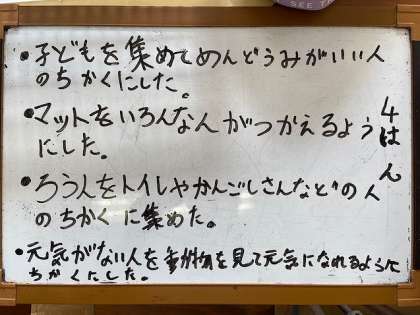 SEE
・子どもを集めてめんどうみがいい人
のちかくにした。
・マットをいろんなんがつかえるよう
にした。
・ろう人をトイレやかんごしさんなどの人
のちかくに集めた。
・元気がない人を動物を見て元気になれるように
ちかくにした。
4はん